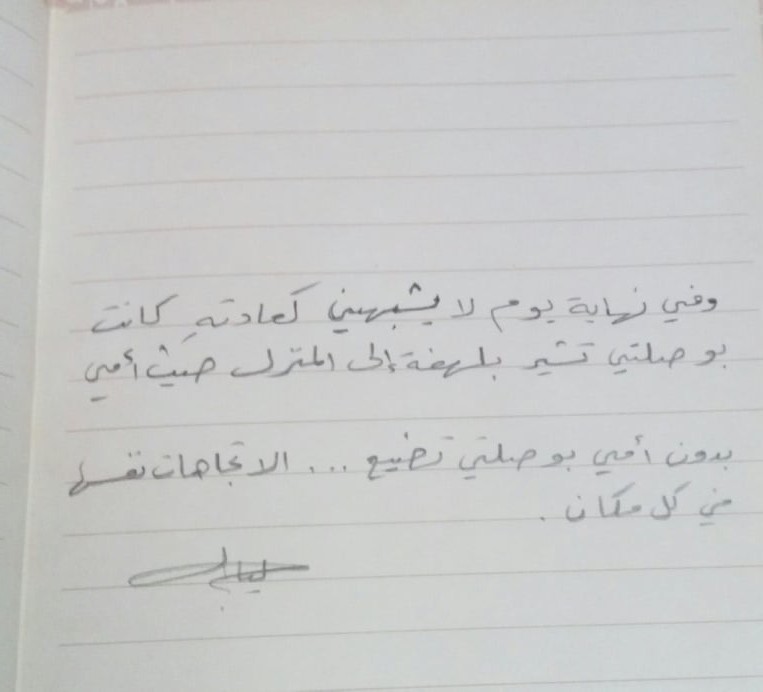 وفي نهاية يوم لا يشبهني كعادتهِ كانت
بوصلتي تشير بلهفة إلى المنزل حيث أمي
بدون أمي بوصلتي تضيع ... الاتجاهات نفسها
في كل مكان .